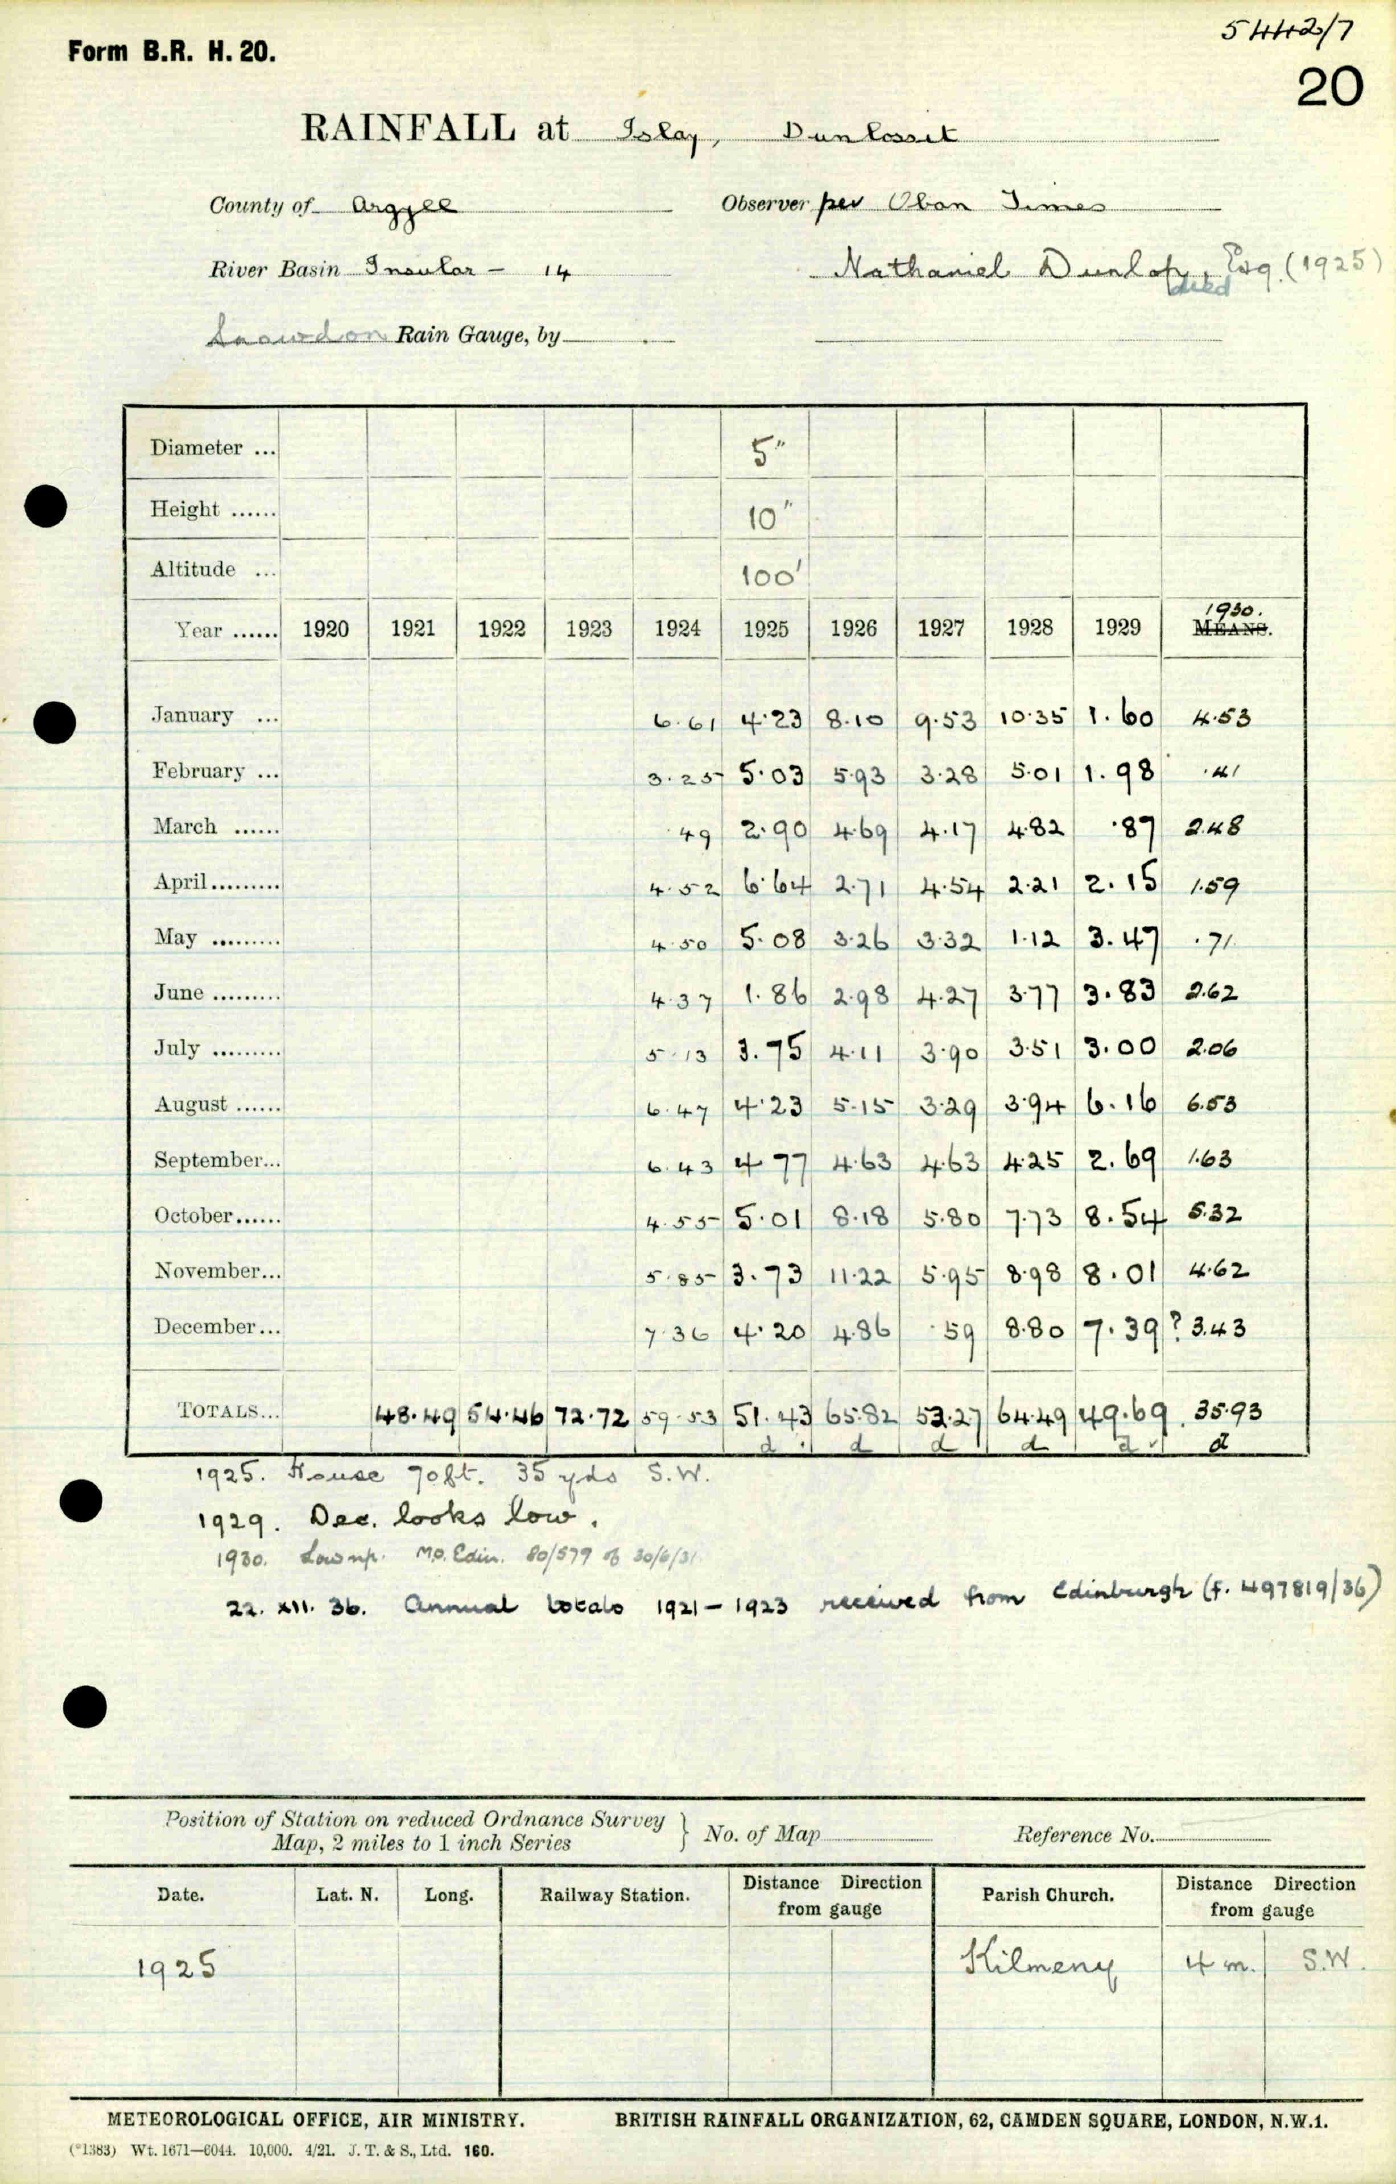 5442/7
Form B.R. H. 20.
20
RAINFALL at Islay, Dunlossit
County of Argyll Observer per Oban Times
River Basin Insular - 14 Nathaniel Dunlop, Esq. (1925)
died
Snowdon Rain Gauge, by
Diameter ... 5"
Height ...... 10"
Altitude ... 100'
1930.
Year ...... 1920 1921 1922 1923 1924 1925 1926 1927 1928 1929 MEANS.
January ... 6.61 4.23 8.10 9.53 10.35 1.60 4.53
February ... 3.25 5.03 5.93 3.28 5.01 1.98 .41
March ...... .49 2.90 4.69 4.17 4.82 .87 2.48
April......... 4.52 6.64 2.71 4.54 2.21 2.15 1.59
May ......... 4.50 5.08 3.26 3.32 1.12 3.47 .71
June ......... 4.37 1.86 2.98 4.27 3.77 3.83 2.62
July ......... 5.13 3.75 4.11 3.90 3.51 3.00 2.06
August ...... 6.47 4.23 5.15 3.29 3.94 6.16 6.53
September... 6.43 4.77 4.63 4.63 4.25 2.69 1.63
October...... 4.55 5.01 8.18 5.80 7.73 8.54 5.32
November... 5.85 3.73 11.22 5.95 8.98 8.01 4.62
December... 7.36 4.20 4.86 .59 8.80 7.39 ? 3.43
TOTALS... 48.49 54.46 72.72 59.53 51.43 65.82 53.27 64.49 49.69 35.93
d d d d d d
1925. House 70ft. 35 yds S.W.
1929. Dec. looks low.
1930. M.O. Edin. 80/579 of 30/6/31
22. XII. 36. Annual totals 1921-1923 received from Edinburgh (f. 497819/36)
Position of Station on reduced Ordnance Survey
Map, 2 miles to 1 inch Series } No. of Map Reference No.
Date. Lat. N. Long. Railway Station. Distance Direction from gauge Parish Church. Distance Direction from gauge
1925 Kilmeny 4 m. S.W.
METEOROLOGICAL OFFICE, AIR MINISTRY. BRITISH RAINFALL ORGANIZATION, 62, CAMDEN SQUARE, LONDON, N.W.1.
(*1383) Wt. 1671—6044. 10,000. 4/21. J. T. & S., Ltd. 160.